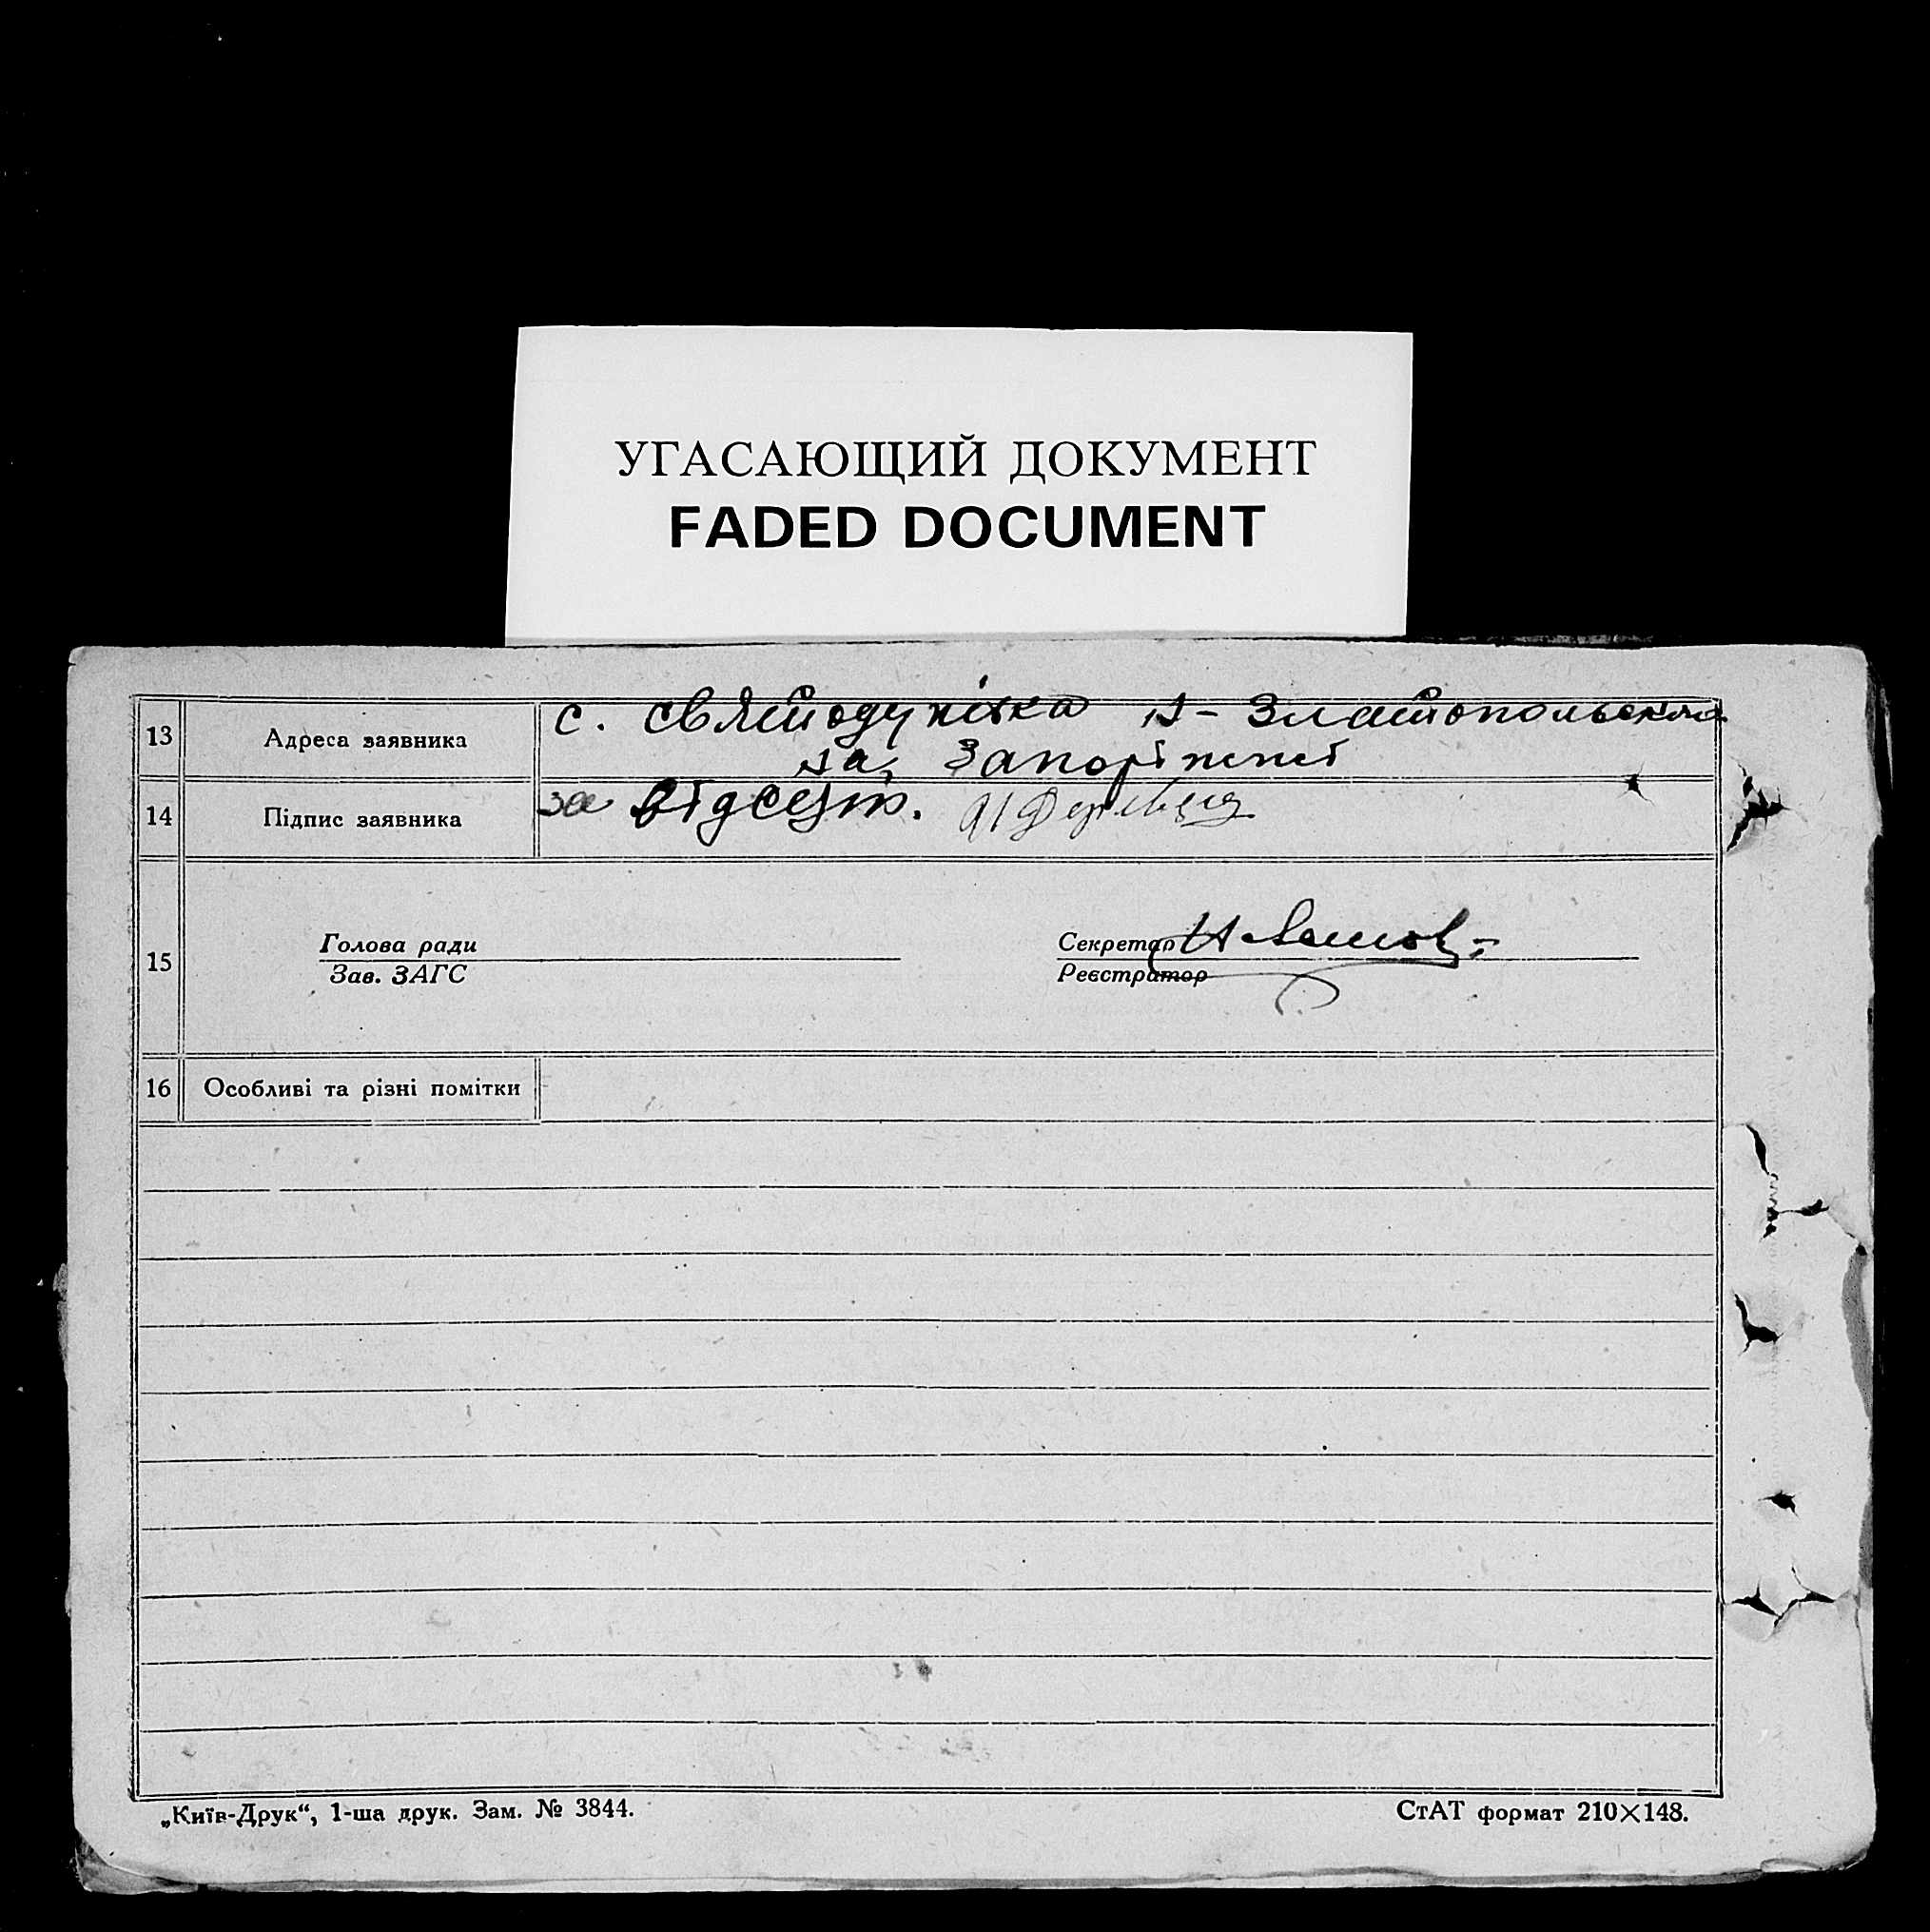 УГАСАЮЩИЙ ДОКУМЕНТ
FADED DOCUMENT
13 Адреса заявника с. Святодухівка
на Запоріжжі
14 Підпис заявника за відсут.
Голова ради Секретар
15
Зав. ЗАГС Реєстратор
16 Особливі та різні помітки
„Київ-Друк“, 1-ша друк. Зам. № 3844. СтАТ формат 210×148.